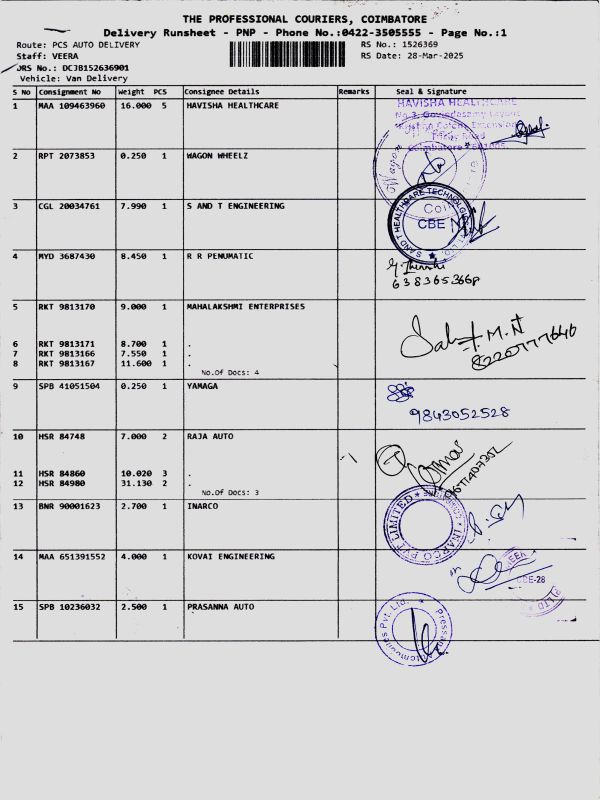 THE PROFESSIONAL COURIERS, COIMBATORE
Delivery Runsheet - PNP - Phone No.:0422-3505555 - Page No.:1
Route: PCS AUTO DELIVERY RS No.: 1526369
Staff: VEERA RS Date: 28-Mar-2025
DRS No.: DCJB152636901
Vehicle: Van Delivery
S No Consignment No Weight PCS Consignee Details Remarks Seal & Signature
1 MAA 109463960 16.000 5 HAVISHA HEALTHCARE HAVISHA HEALTHCARE
2 RPT 2073853 0.250 1 WAGON WHEELZ Wagon
3 CGL 20034761 7.990 1 S AND T ENGINEERING S AND T HEALTHCARE TECHNOLOGIES CBE
4 MYD 3687430 8.450 1 R R PENUMATIC
6383653668
5 RKT 9813170 9.000 1 MAHALAKSHMI ENTERPRISES
6 RKT 9813171 8.700 1 .
7 RKT 9813166 7.550 1 .
8 RKT 9813167 11.600 1 .
No.Of Docs: 4
9 SPB 41051504 0.250 1 YAMAGA
9843052528
10 HSR 84748 7.000 2 RAJA AUTO
11 HSR 84860 10.020 3 .
12 HSR 84980 31.130 2 .
No.Of Docs: 3
13 BNR 90001623 2.700 1 INARCO INARCO PVT LIMITED
14 MAA 651391552 4.000 1 KOVAI ENGINEERING CBE-28
15 SPB 10236032 2.500 1 PRASANNA AUTO Pvt. Ltd.